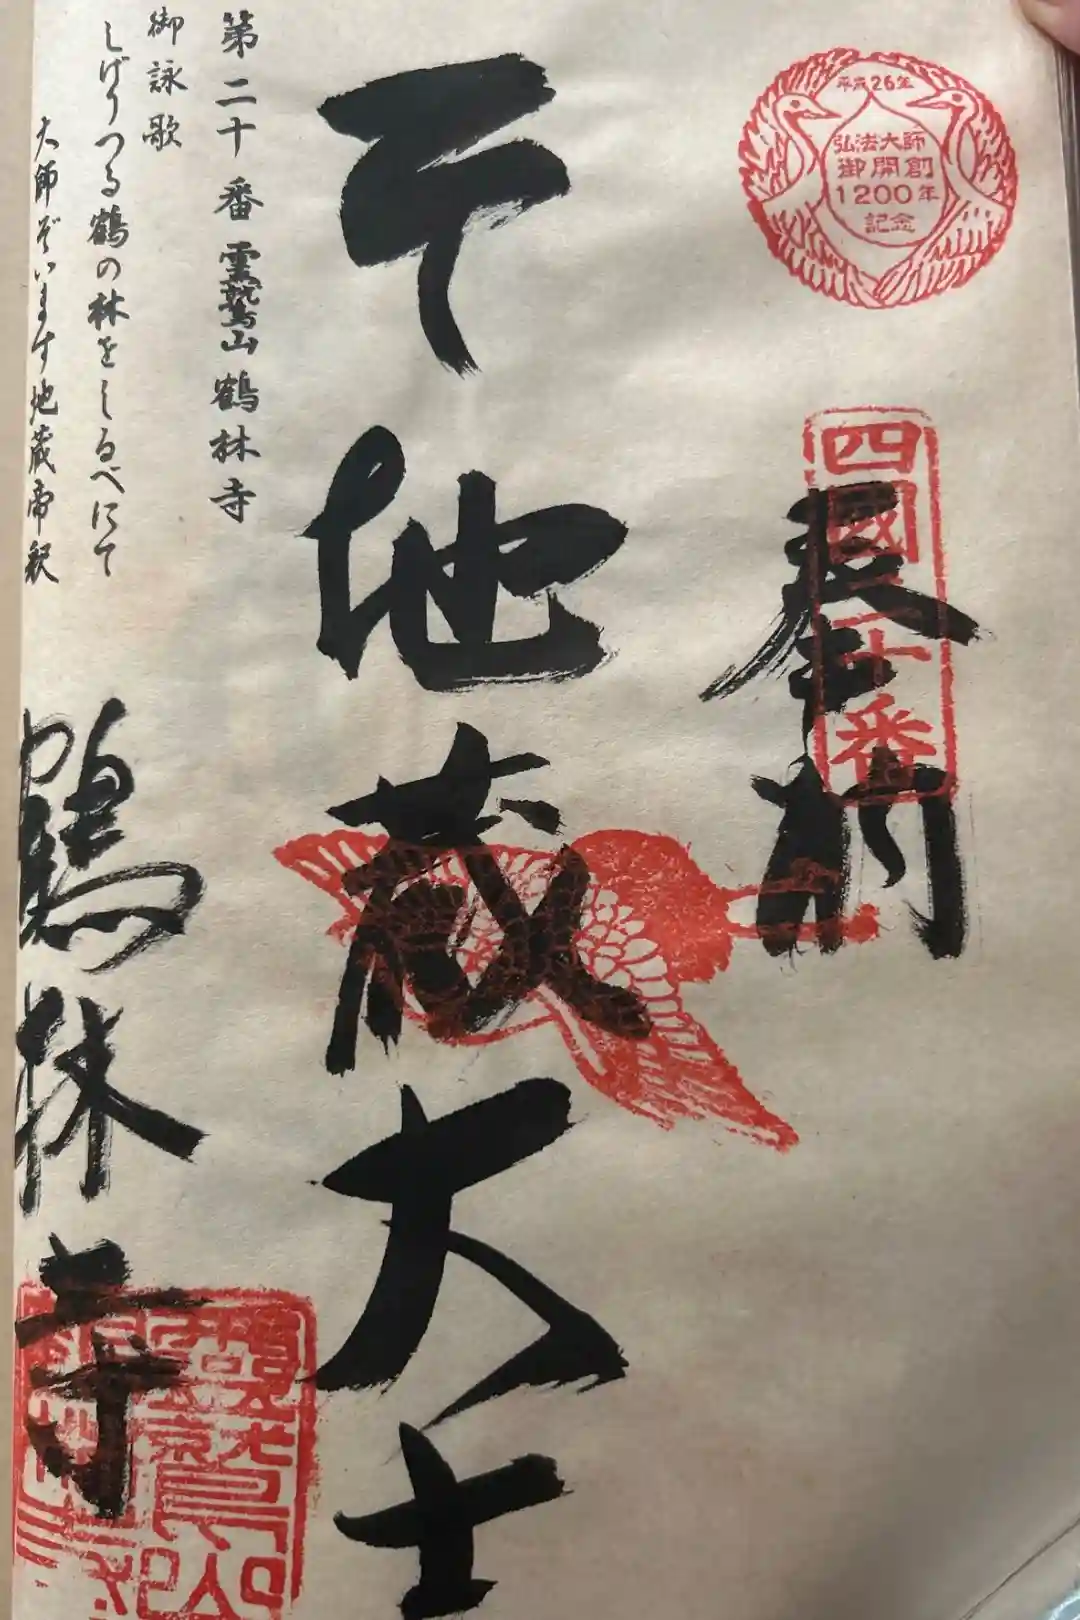 平成26年
弘法大師
御開創
1200年
記念
四國二十番
奉納
地蔵大士
第二十番 霊鷲山鶴林寺
御詠歌
しげりつる鶴の林をしるべにて
大師ぞいます地蔵帝釈
鶴林寺